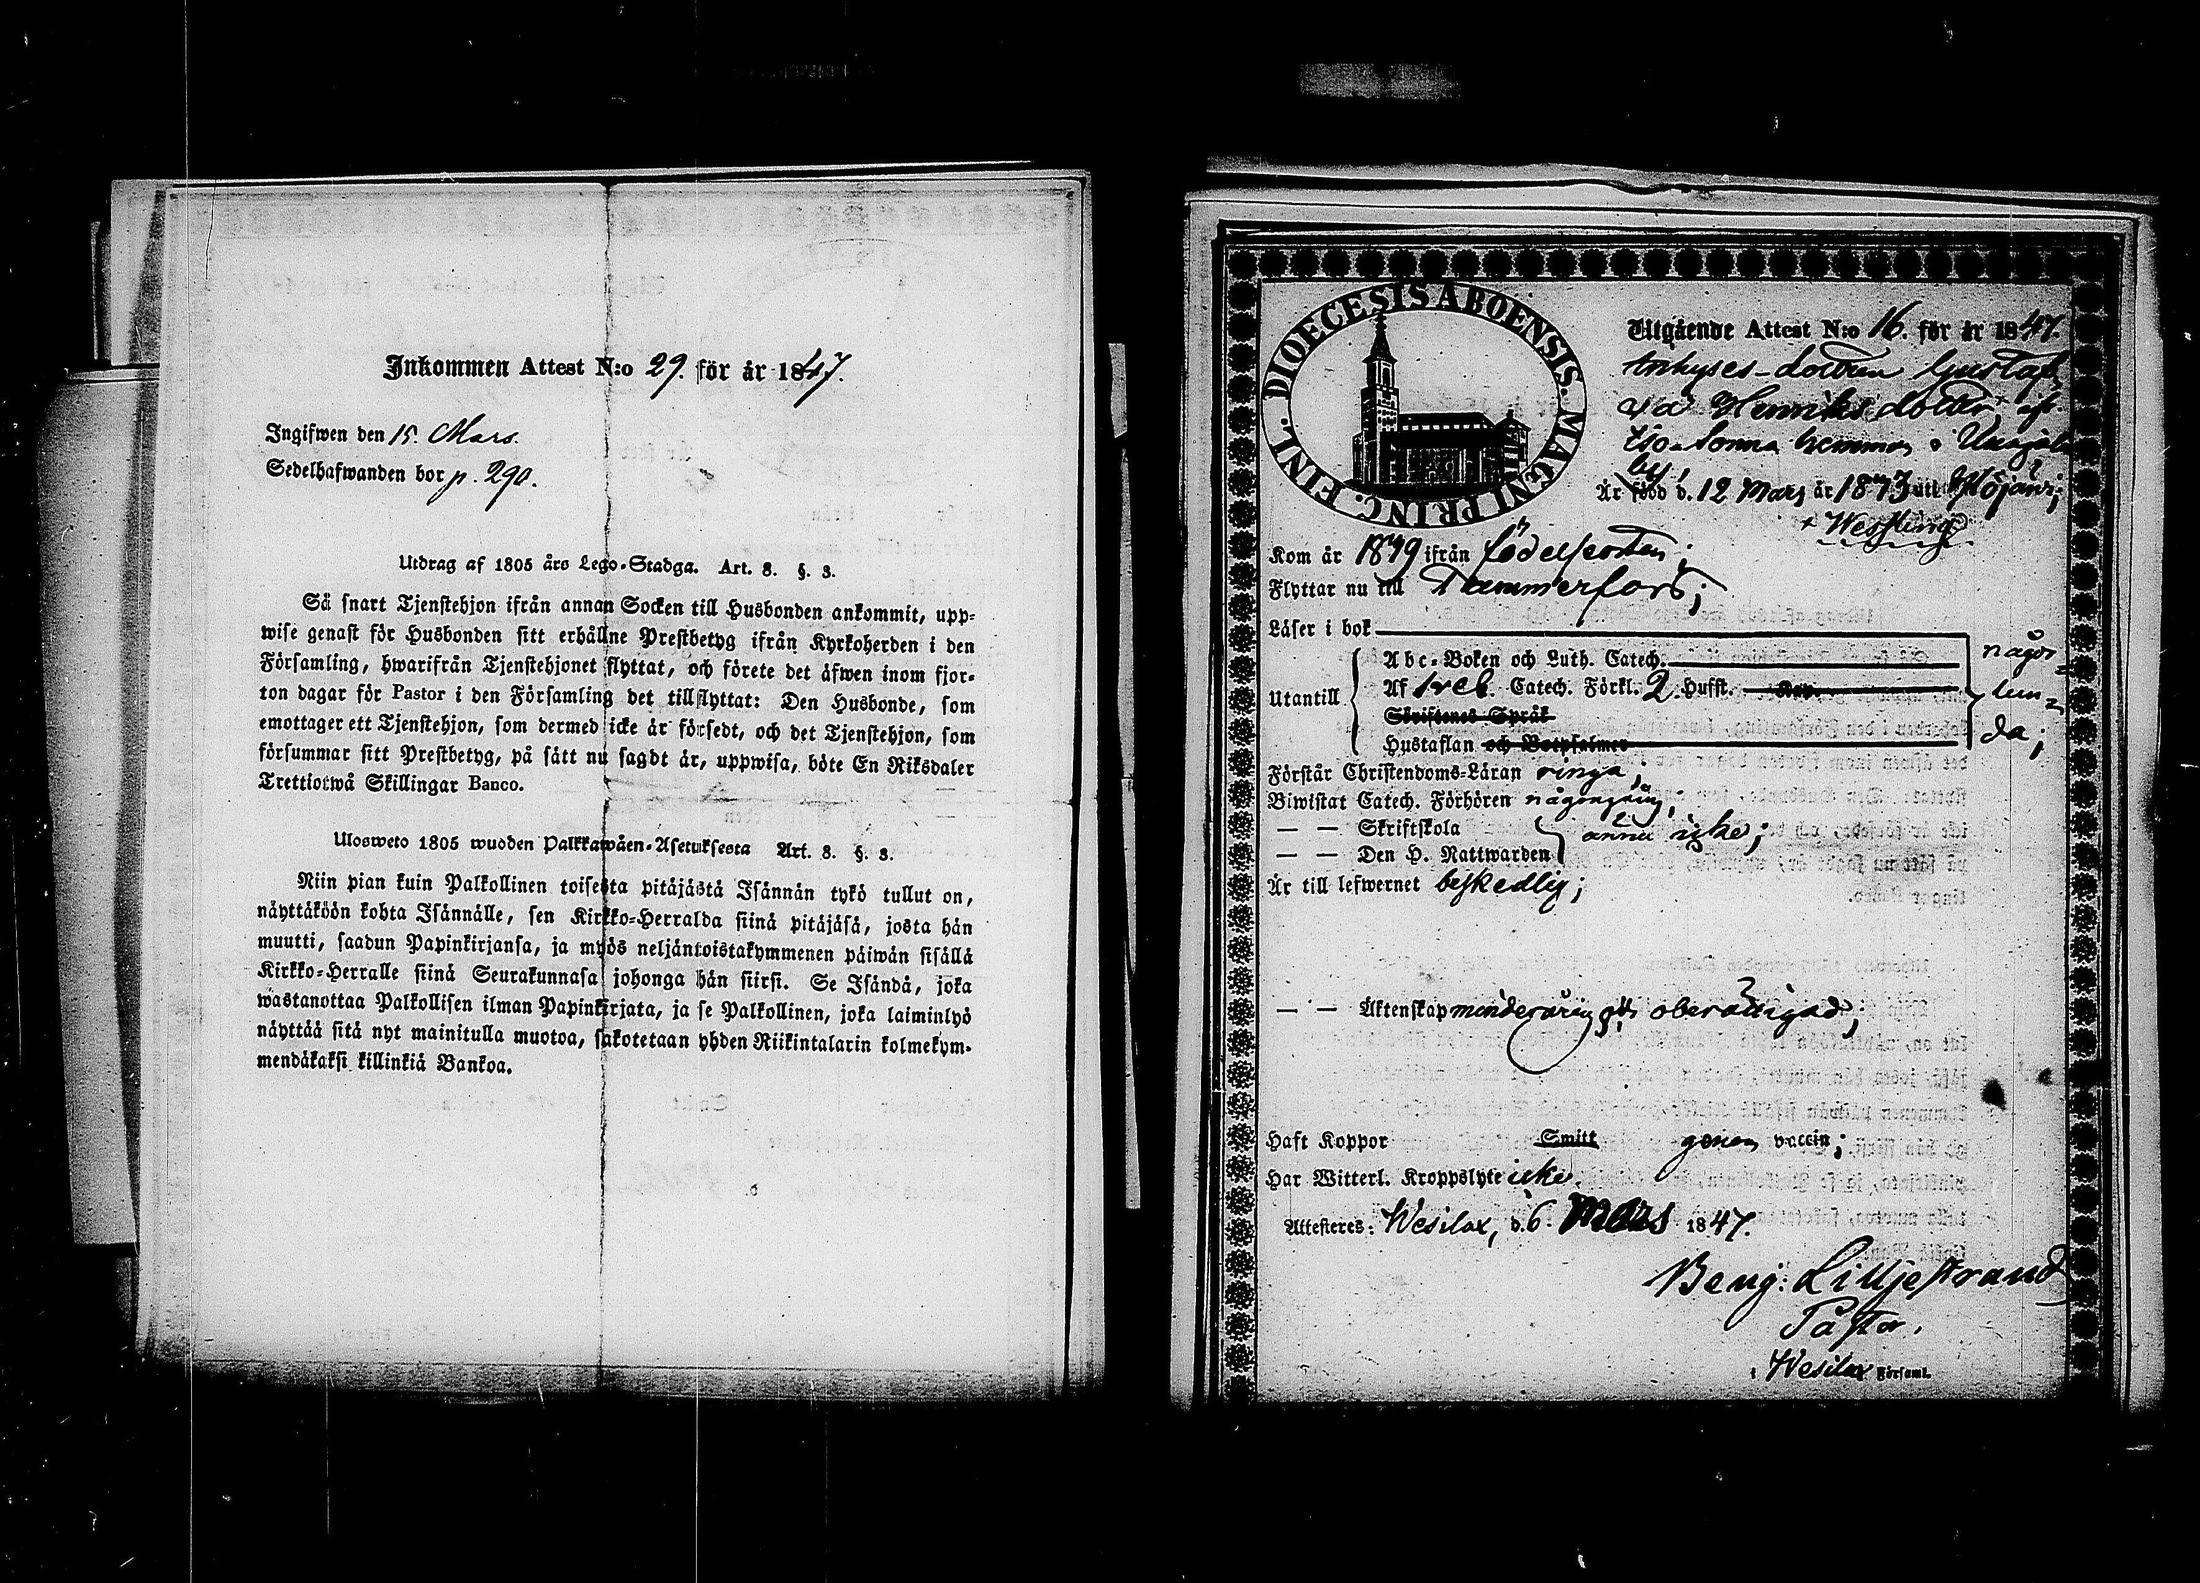 Inkommen Attest N:o 29. för år 1847.
Ingifwen den 15. Mars.
Sedelhafwanden bor p. 290.
Utdrag af 1805 års Lego-Stadga. Art. 8. §. 3.
Så snart Tjenstehjon ifrån annan Socken till Husbonden ankommit, upp-
wise genast för Husbonden sitt erhållne Prestbetyg ifrån Kyrkoherden i den
Församling, hwarifrån Tjenstehjonet flyttat, och förete det äfwen inom fjor-
ton dagar för Pastor i den Församling det tillflyttat: Den Husbonde, som
emottager ett Tjenstehjon, som dermed icke är försedt, och det Tjenstehjon, som
försummar sitt Prestbetyg, på sätt nu sagdt är, uppwisa, böte En Riksdaler
Trettiotwå Skillingar Banco.
Ulosweto 1805 wuoden Palkkawäen-Asetuksesta Art. 8. §. 3.
Niin pian kuin Palkollinen toisesta pitäjästä Isännän tykö tullut on,
näyttäköön kohta Isännälle, sen Kirkko-Herralda siinä pitäjäsä, josta hän
muutti, saadun Papinkirjansa, ja myös neljäntoistakymmenen päiwän sisällä
Kirkko-Herralle siinä Seurakunnasa johonga hän siirsi. Se Isändä, joka
wastanottaa Palkollisen ilman Papinkirjata, ja se Palkollinen, joka laiminlyö
näyttää sitä nyt mainitulla muotoa, sakotetaan yhden Riikintalarin kolmekym-
mendäkaksi killinkiä Bankoa.
DIOECESIS ABOENSIS. MAGNI PRINC. FINL.
Utgående Attest N:o 16. för år 1847.
Inhyses-dottren Gustaf-
va Henriksdotter, ifr.
hemman i
by;
Är född d. 12 Mars år 1833 uti
+ Wessling
Kom år 1839 ifrån födelseorten;
Flyttar nu till Tammerfors;
Läser i bok
Utantill
Abc-Boken och Luth. Catech.
Af Sveb. Catech. Förkl. 2 Hufst.
Skriftenes Språk
Hustaflan och Botpsalmer
någor-
lun-
da;
Förstår Christendoms-Läran ringa;
Biwistat Catech. Förhören någongång;
— — Skriftskola
— — Den H. Nattwarden
ännu icke;
Är till lefwernet beskedlig;
— — Äktenskap minderårig och obesvärgad;
Haft Koppor Smitt genom vaccin;
Har Witterl. Kroppslyte icke.
Attesteres: Wesilax, d. 6. Mars 1847.
Benj: Lilljestrand
Pastor.
i Wesilax Församl.